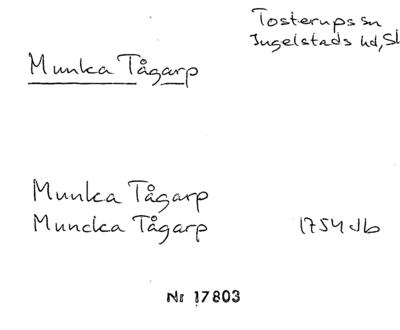 Tosterups sn
Ingelstads hd, Sk
Munka Tågarp
Munka Tågarp
Muncka Tågarp 1754 Jb
Nr 17803